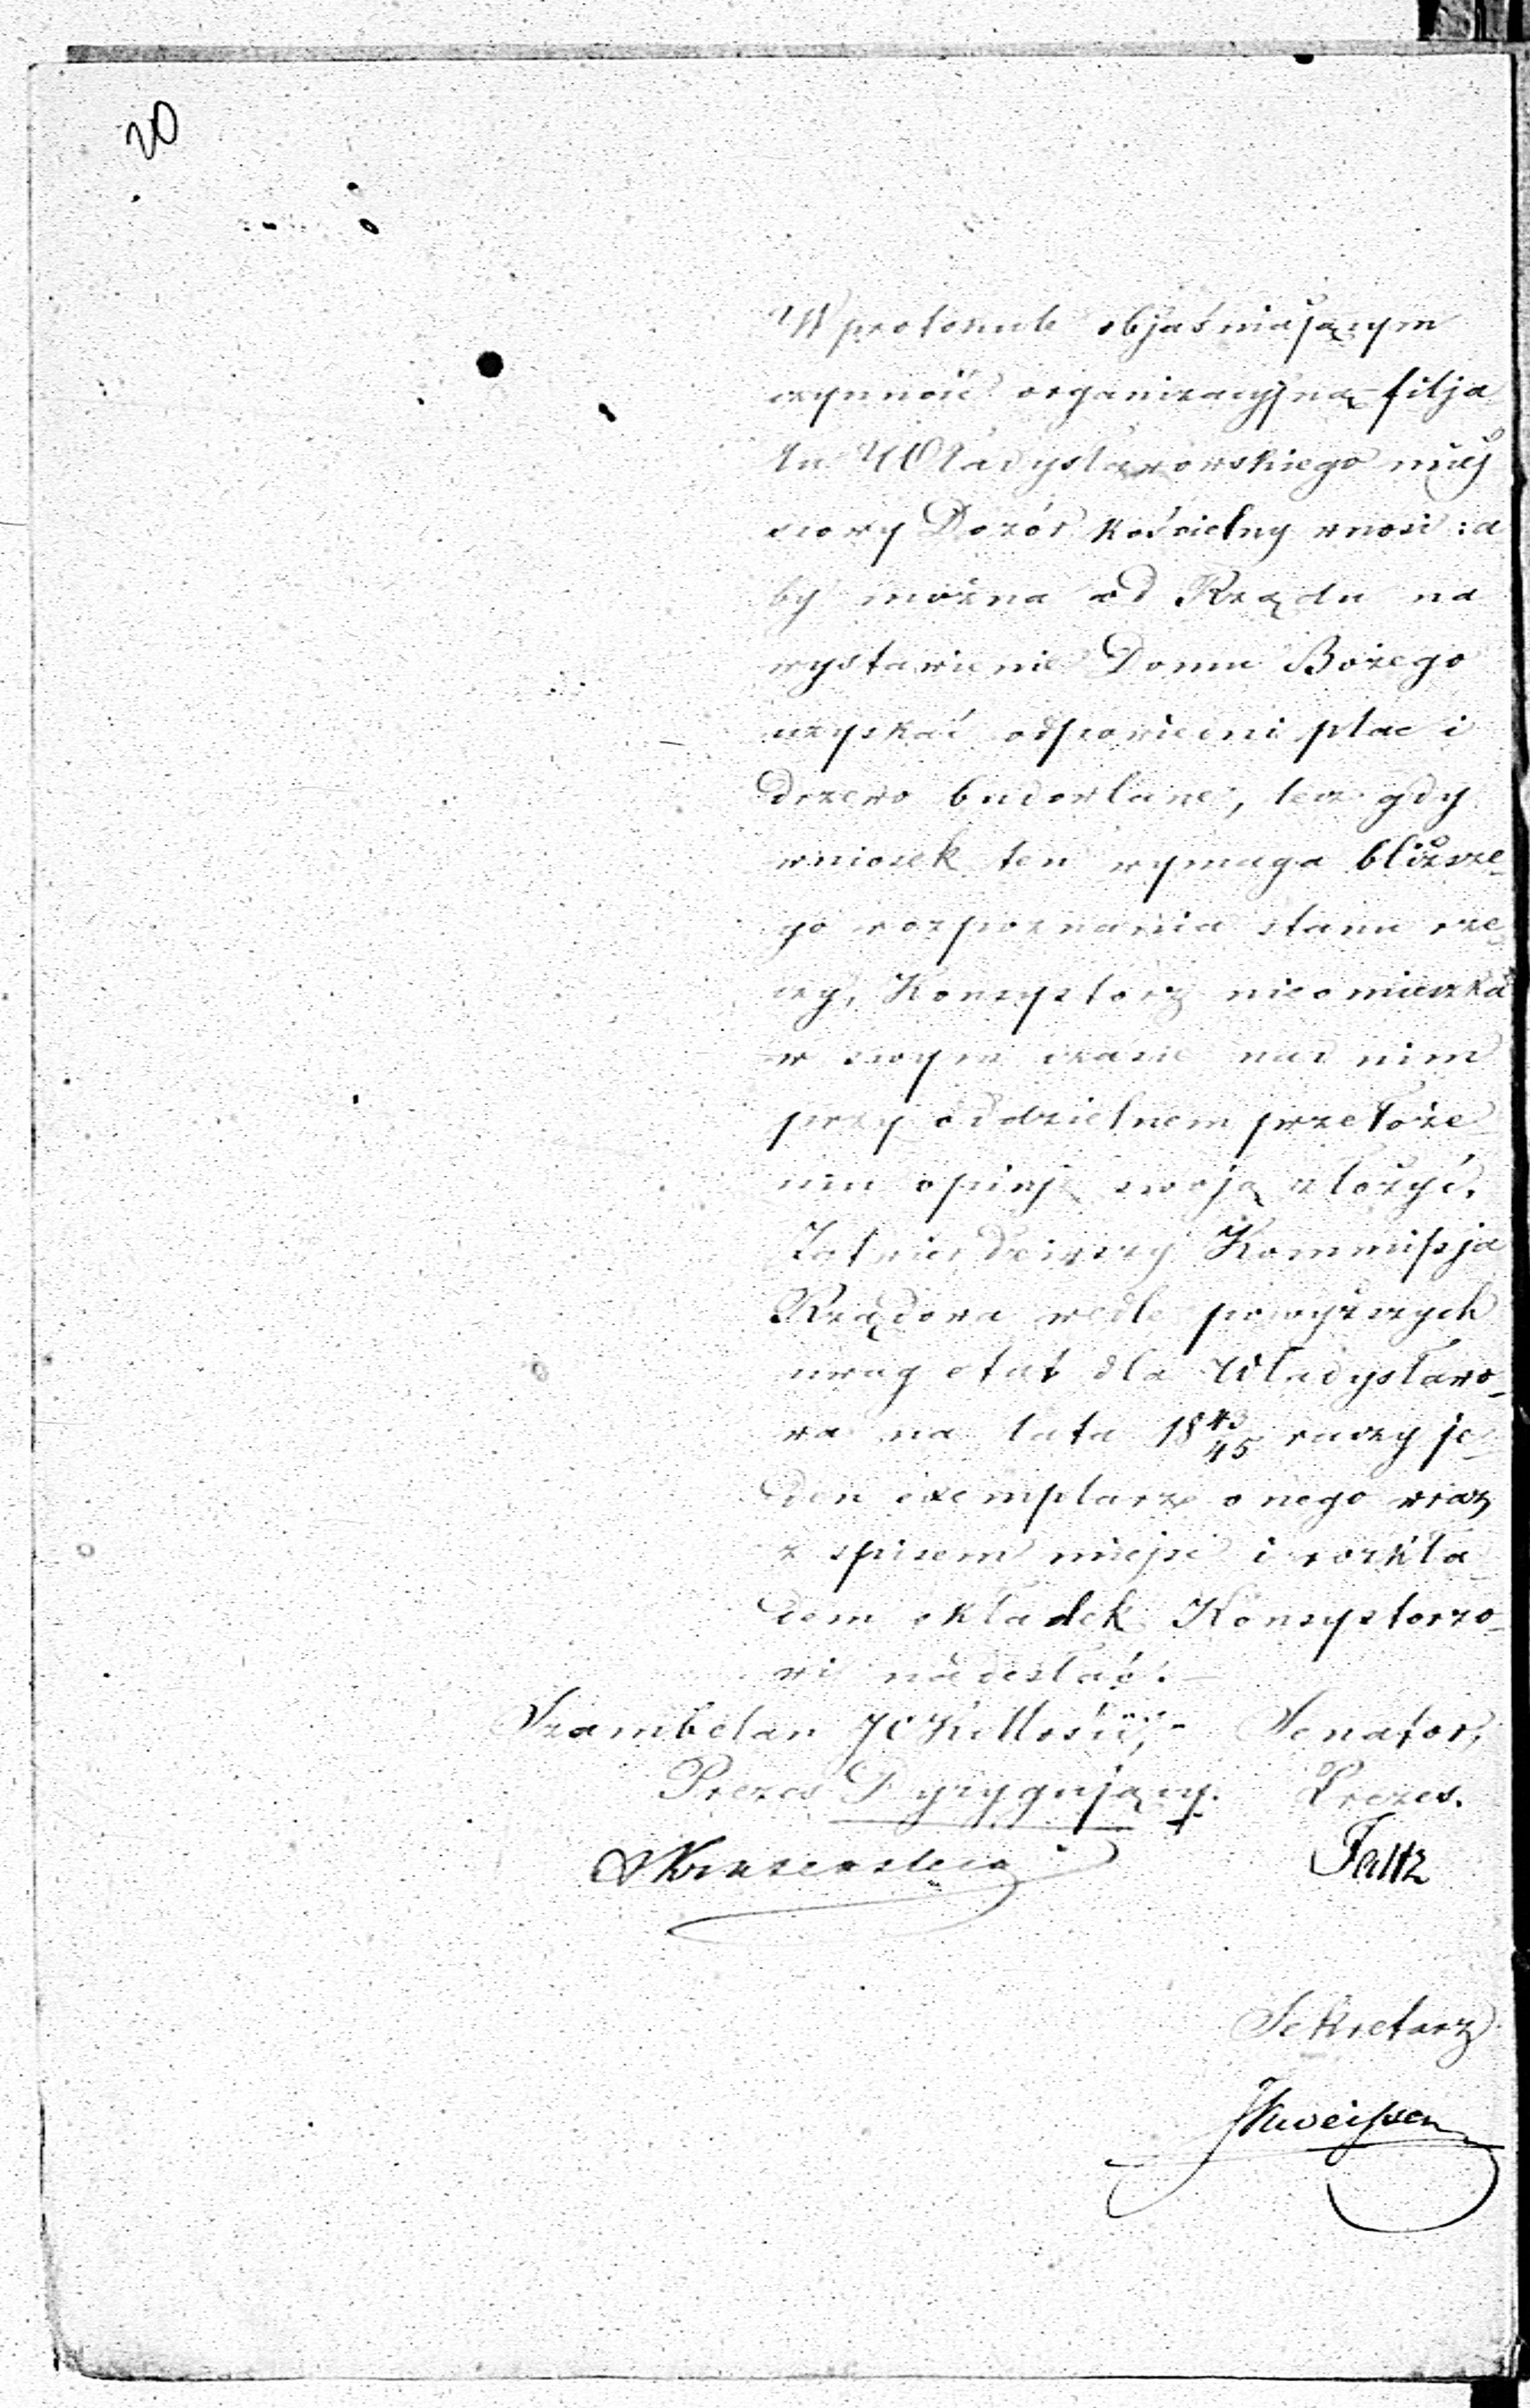 20
W protokule objaśniającym
czynność organizacyjną filja
łu Władysławowskiego miej
scowy Dozór kościelny wnosi: a
by można od Rządu na
wystawienie Domu Bożego
uzyskać odpowiedni plac i
drzewo budowlane, lecz gdy
wniosek ten wymaga bliższe_
go rozpoznania stanu rze_
czy, Konsystorz nieomieszka
w swym czasie nad nim
przy oddzielnem przełoże_
niu opinję swoją złożyć.
Zatwierdziwszy Kommissja
Rządowa wedle powyższych
uwag etat dla Władysławo_
wa na lata 18 43/45 raczy je_
den exemplarz onego wraz
z spisem miejsc i rozkła_
dem składek Konsystorzo_
wi nadesłać.
Szambelan Senator,
Prezes Dyrygujący. Prezes.
Faltz
Sekretarz